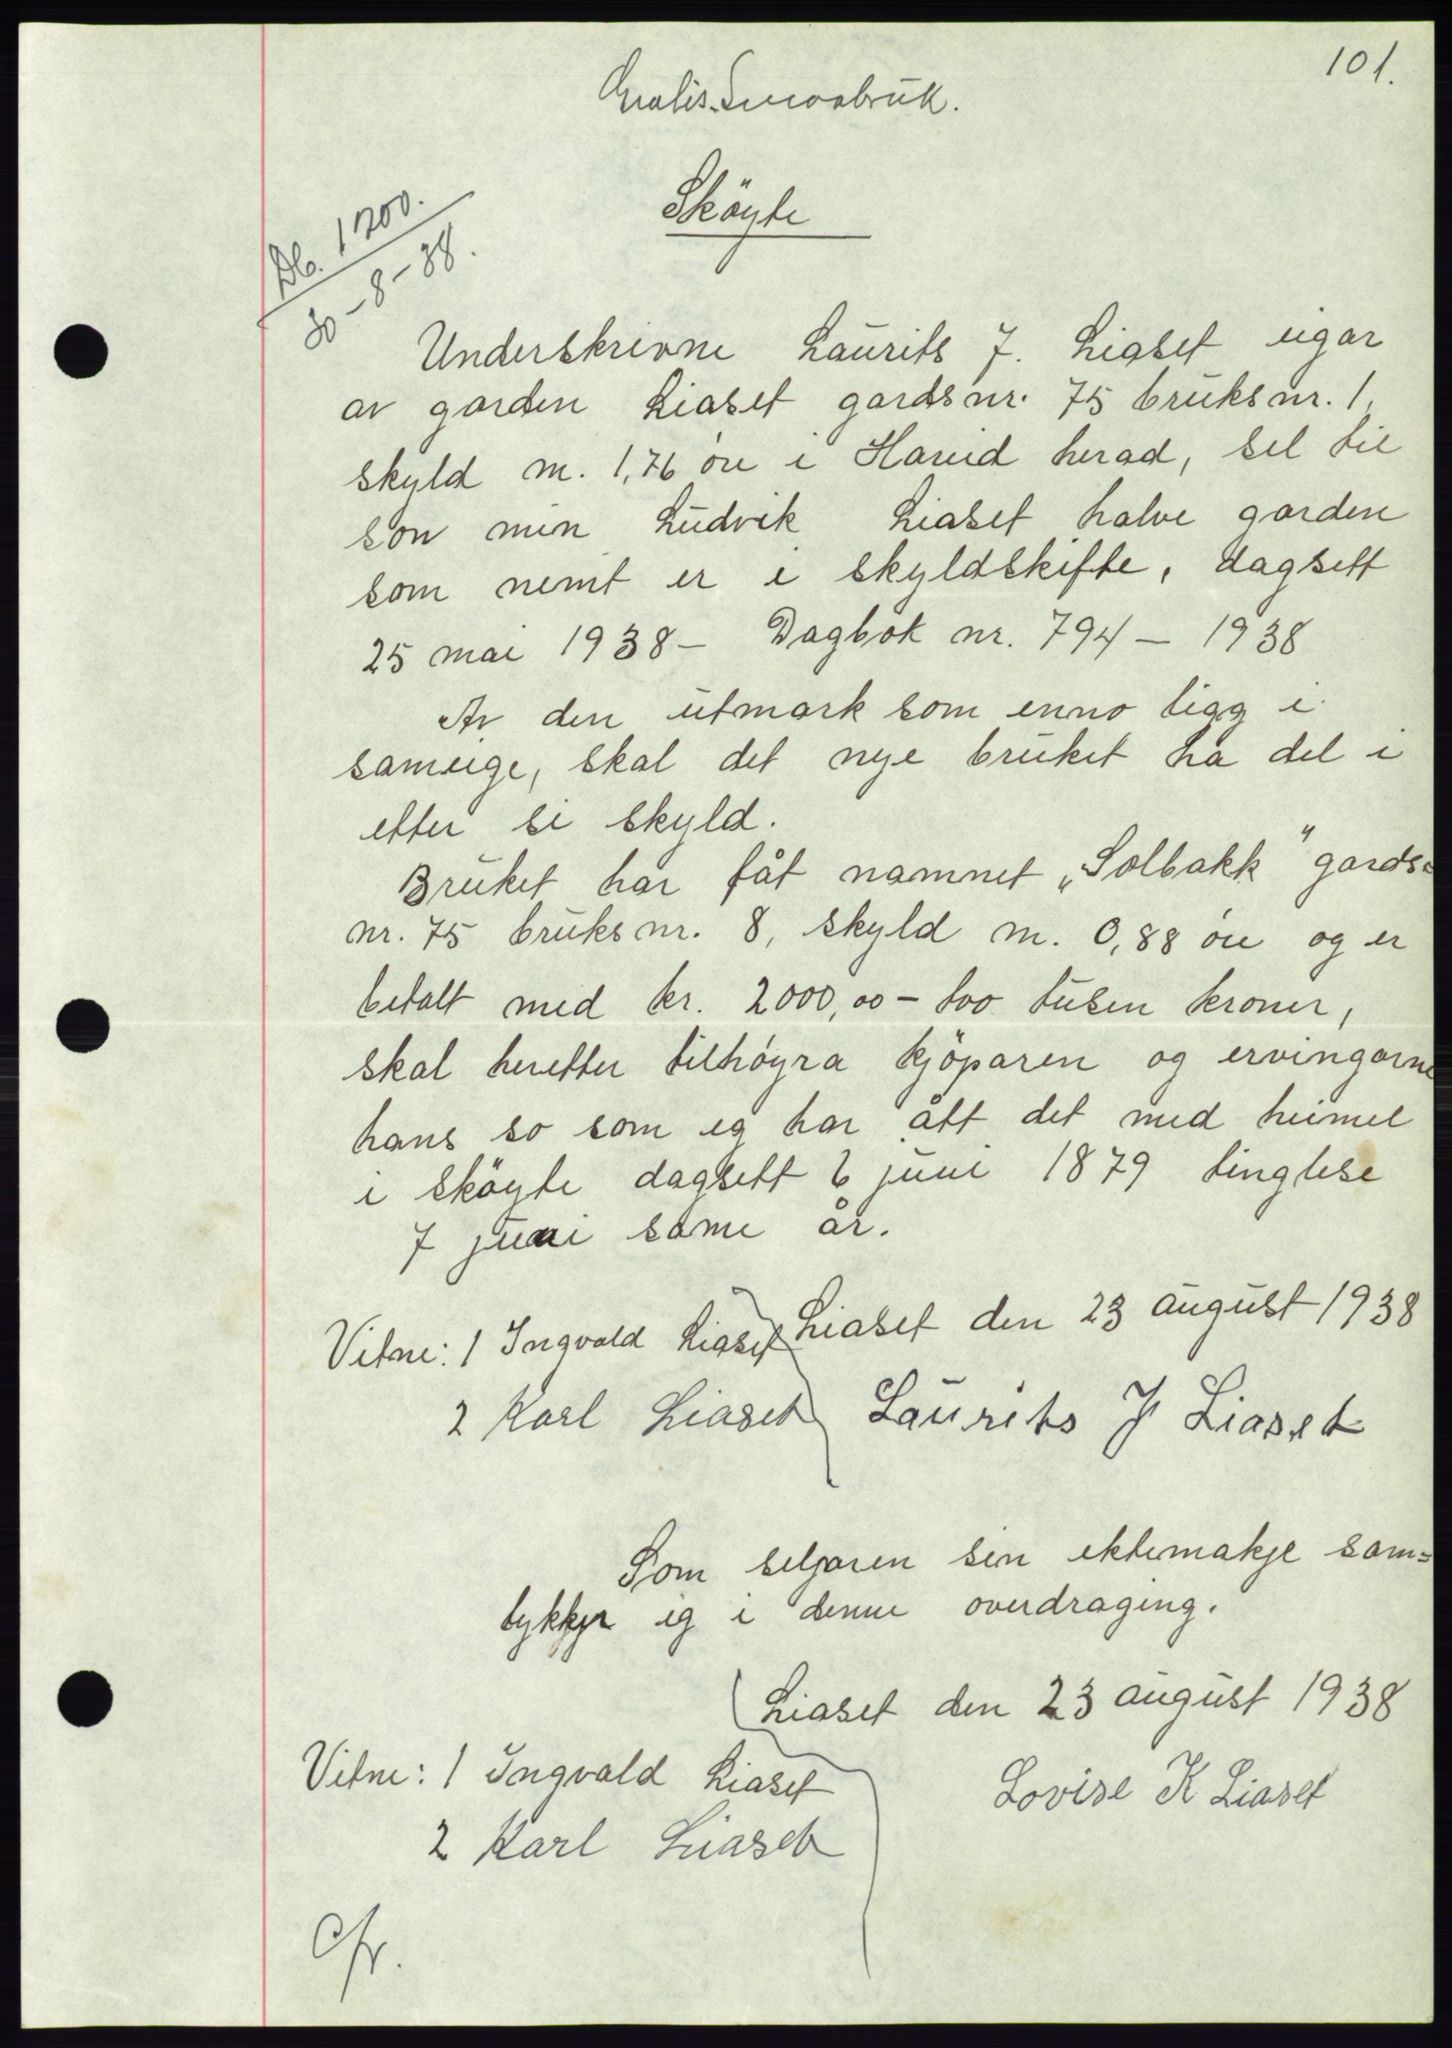 101.
Gratis. Smaabruk.
Sköyte
Db. 1200.
30-8-38.
Underskrivne Laurits J. Liaset eigar
av garden Liaset gardsnr. 75 bruksnr. 1,
skyld m. 1,76 øre i Hareid herad, sel til
son min Ludvik Liaset halve garden
som nemt er i skyldskifte, dagsett
25 mai 1938 - Dagbok nr. 794 - 1938
Av den utmark som enno ligg i
sameige, skal det nye bruket ha del i
etter si skyld.
Bruket har fåt namnet „Solbakk" gards=
nr. 75 bruksnr. 8, skyld m. 0,88 øre og er
betalt med kr. 2000,00 - tvo tusen kroner,
skal heretter tilhøyra kjöparen og ervingarne
hans so som eg har ått det med heimel
i sköyte dagsett 6 juni 1879 tinglese
7 juni same år.
Liaset den 23 august 1938
Vitne: 1 Ingvald Liaset
2 Karl Liaset Laurits J Liaset
Som seljaren sin ektemakje sam=
tykkjer eg i denne overdraging.
Liaset den 23 august 1938
Vitne: 1 Ingvald Liaset Lovise K Liaset
2 Karl Liaset
Cfr.